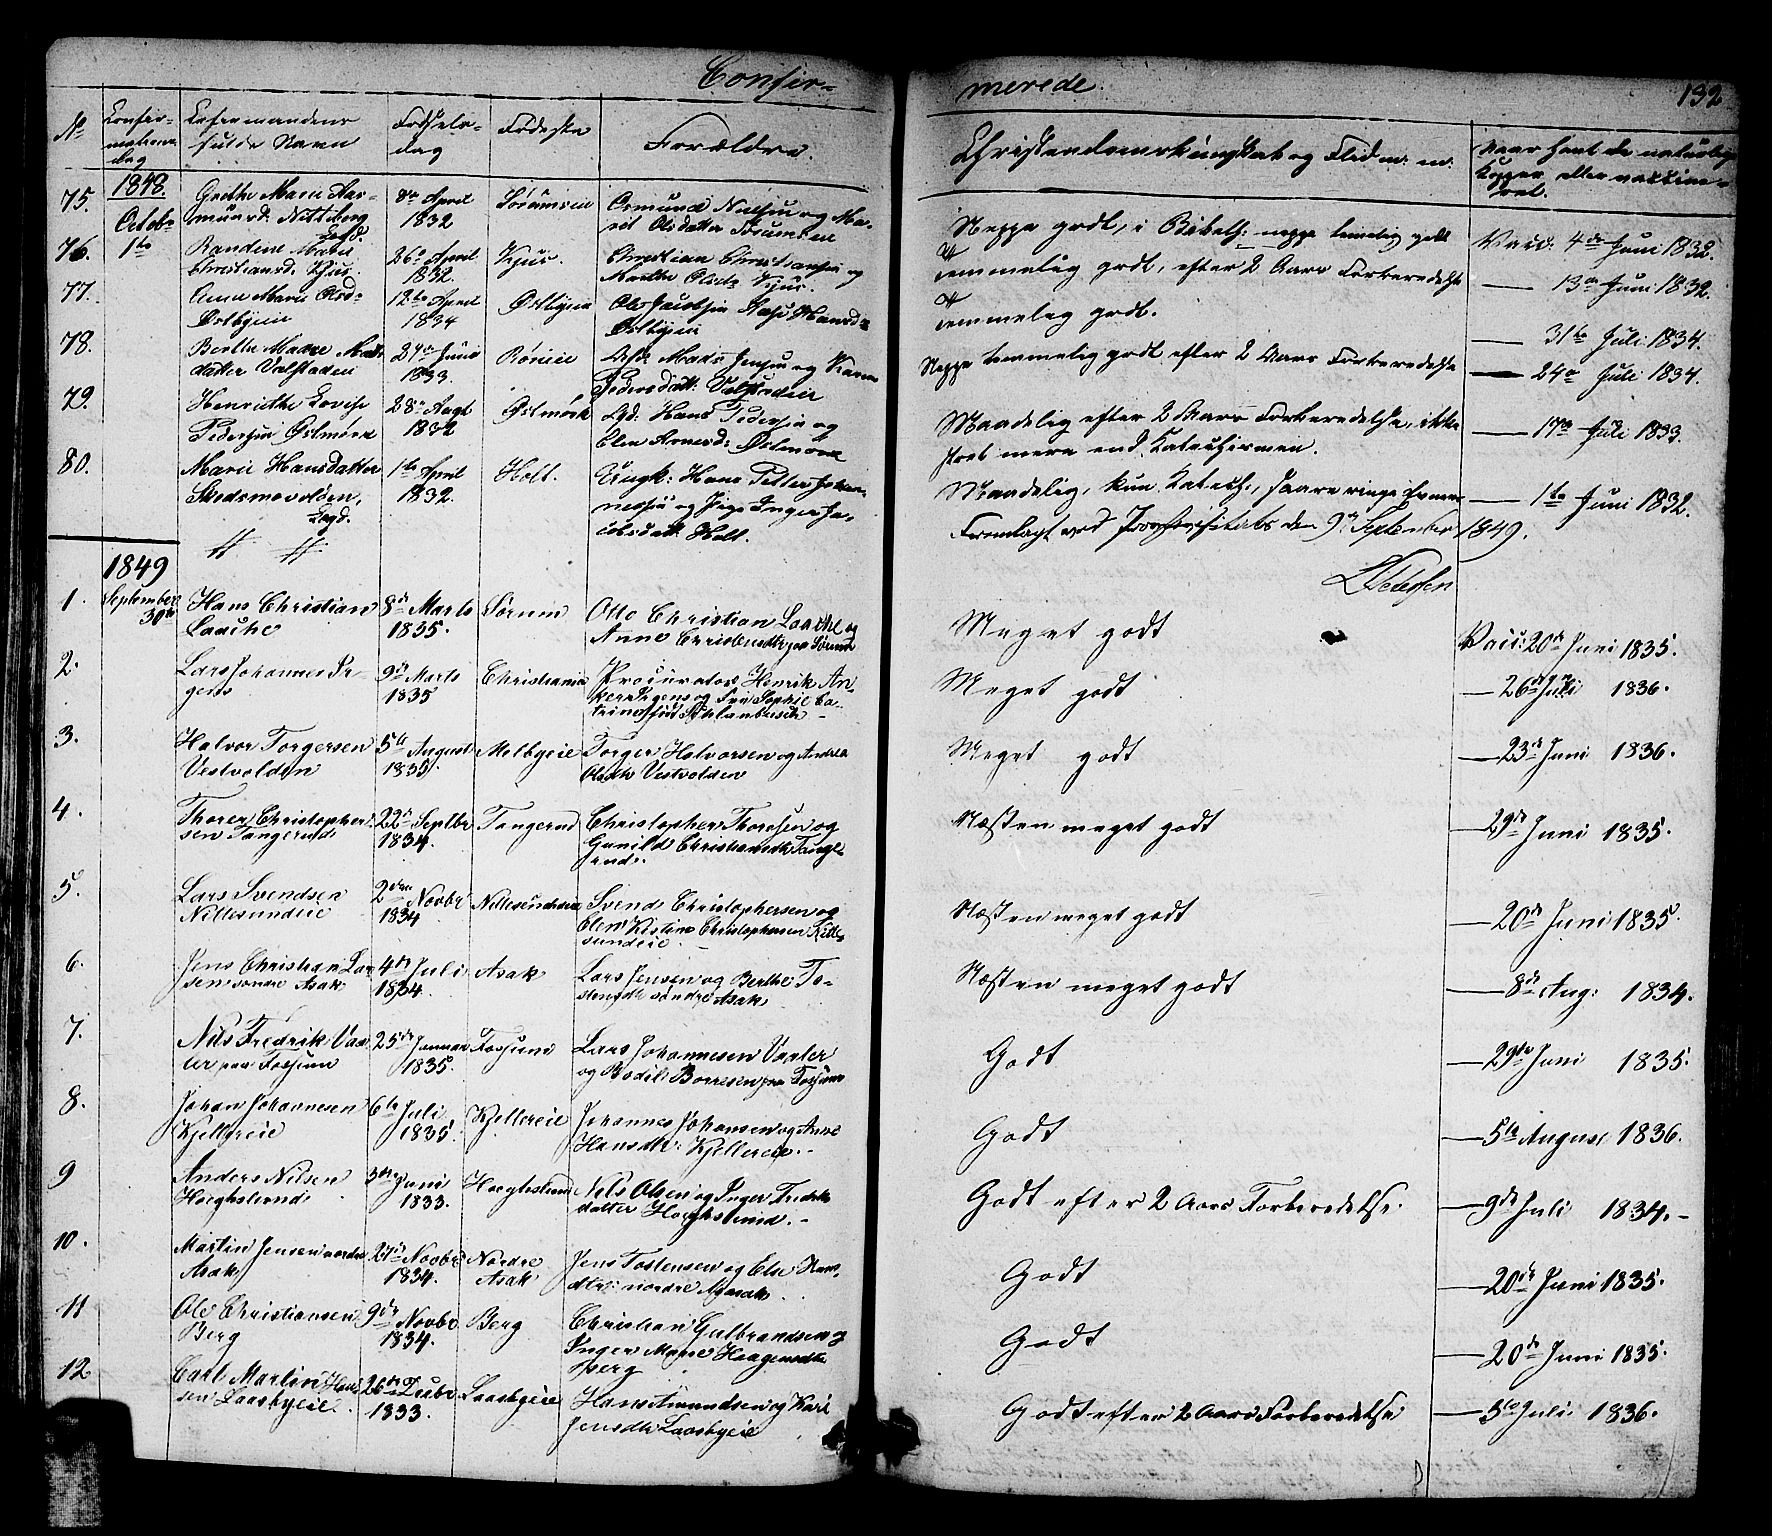 Confir-
merede.
132
No
Confir-
mations
dag
Confirmandens
fulde Navn
Fødsels-
dag
Fødested
Forældre.
Christendomskundskab og Flid m. m.
Naar havt de naturlige
Kopper eller vaccine-
ret.
75.
1848.
Octobr
Grethe Marie Aas-
mundsd. Nitteberg
8de April
1832
Sørumseie
Osmund Nielsen og Ma-
rit Olsdatter Sørumseie
Neppe godt, i Bibelh. neppe temmelig godt
Vacc. 4de Juni 1832.
76.
1te
Randine Marie
Christiansd. Kjus.
26de April
1832.
Kjus.
Christian Christiansen og
Marthe Olsdr Kjus.
Temmelig godt, efter 2 Aars Forberedelse
— 13de Juni 1832.
77.
Anne Marie Olsd.
Østbyeie
12te April
1834
Østbyeie
Ole Jacobsen Aase Hansdr
Østbyeie
Temmelig godt.
— 31te Juli 1834.
78.
Berthe Maria Mads
datter Valstadeie
24de Juni
1833.
Røneie
Mads Jensen og Karen
Pedersdatt. Valstadeie
Neppe temmelig godt efter 2 Aars Forberedelse
— 24de Juli 1834.
79.
Henriette Lovise
Pedersen Østmoen
28de Augt
1832
Østmoen
Hans Pedersen og
Elen Arnesd. Østmoen
Maadelig efter 2 Aars Forberedelse, ikke
stort mere end Katechismen.
— 17de Juli 1833.
80.
Marie Hansdatter
Skedsmovolden,
Lægd.
1te April
1832.
Holt.
Ungk: Hans Petter Johan-
nessen og Pige Inger Ja-
cobsdatt. Holt.
Maadelig, kun Katech.,
— 1te Juni 1832.
Fremlagt ved Provstvisitats den 9de September 1849.
1849
1.
September
30te
Hans Christian
Laache
8de Marts
1835.
Sørum
Otto Christian Laache og
Anne Christensdtr paa Sørum
Meget godt
Vacc: 20de Juni 1835.
2.
Lars Johannes Ir-
gens
9de Marts
1835
Christiania
Procurator Henrik An-
ker Irgens og Fru Sophie Ca-
trine født Schlanbusch
Meget godt
— 26de Juli 1836.
3.
Halvor Torgersen
Vestvolden
5te August
1835.
Melbyeie
Torger Halvorsen og Andrea
Olsdtr Vestvolden
Meget godt
— 23de Juni 1836.
4.
Thorer Christopher
sen Tangerud
22de Septbr
1834.
Tangerud
Christopher Thoresen og
Gunild Christiansdtr Tange-
rud.
Næsten meget godt
— 29de Juni 1835.
5.
Lars Svendsen
Nittesundeie
2den Novbr
1834
Nittesundeie
Svend Christophersen og
Elen Kistine Christophersen Nitte-
sundeie.
Næsten meget godt
— 20de Juni 1835.
6.
Jens Christian Lar
sen søndre Asak
4de Juli
1834.
Asak
Lars Jensen og Berthe To-
stensdtr søndre Asak
Næsten meget godt
— 8de Aug: 1834.
7.
Nils Fredrik Vaa
ler paa Fossum
25de Januar
1835.
Fossum
Lars Johannesen Vaaler
og Bodil Borresen paa Fossum
Godt
— 29de Juni 1835.
8.
Johan Johannesen
Kjellereie
6te Juli
1835.
Kjellereie
Johannes Johansen og Anne
Hansdtr. Kjellereie.
Godt
— 5te August 1836.
9
Anders Nilsen
Høeghslund
3die Juni
1833.
Høeghslund
Nils Olsen og Inger Fredriks
datter Høeghslund.
Godt efter 2 Aars Forberedelse.
— 9de Juli 1834.
10.
Martin Jensen nordre
Asak
27de Novbr
1834.
Nordre
Asak
Jens Tostensen og Else Hans
dtr: nordre Asak
Godt
— 20de Juni 1835.
11
Ole Christiansen
Berg
9de Novbr
1834.
Berg
Christian Gulbrandsen og
Inger Marie Haagensdtr
Berg
Godt
— 20de Juni 1835.
12
Carl Martin Han
sen Laasbyeie.
26de Octbr
1833.
Laasbyeie
Hans Amundsen og Kari
Jensdtr Laasbyeie
Godt efter 2 Aars Forberedelse
— 5te Juli 1836.